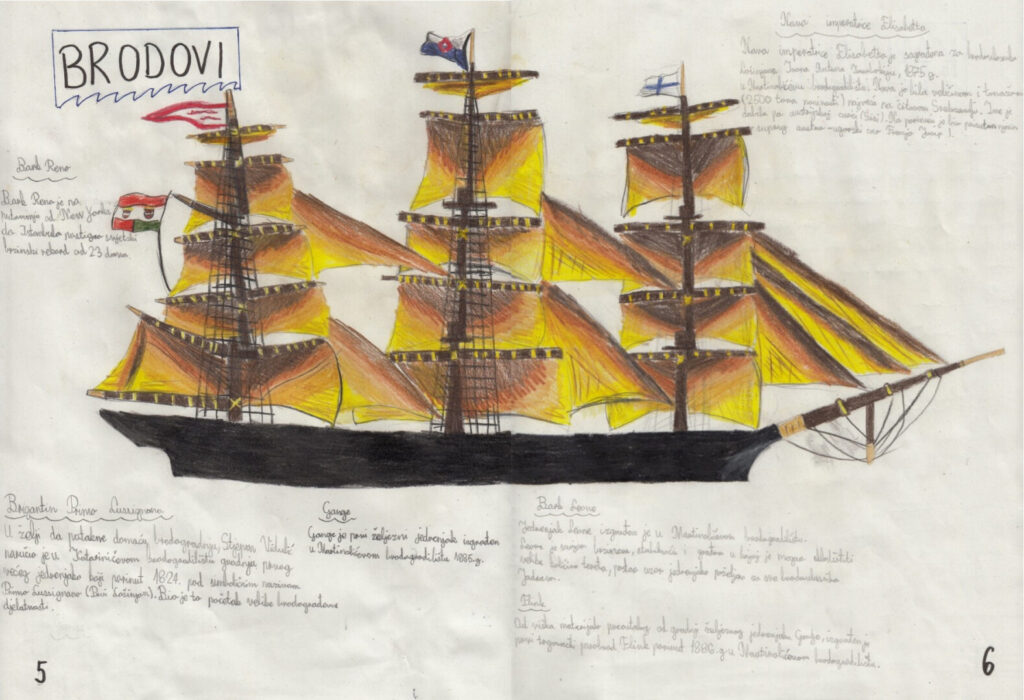 BRODOVI
Bark Reno
Bark Reno je na
putovanju od New Yorka
do Istanbula postigao svjetski
brzinski rekord od 23 dana.
Nava imperatrice Elisabetta
Nava imperatrice Elisabetta je sagrađena za brodovlasnika
Lošinjana Ivana Antuna 1875 g.
u Martinolićevu brodogradilištu. Nava je bila veličinom i tonažom
(2500 tona nosivosti) najveća na čitavom Sredozemlju. Ime je
dobila po austrijskoj carici (Sisi). Na porinuću je bio
suprug austro-ugarski car Franjo Josip I.
Brigantin Primo Lussignano
U želji da potakne domaću brodogradnju, Stjepan Vidulić
naručio je u Katarinićevom brodogradilištu gradnju prvog
većeg jedrenjaka koji porinut 1824. pod simboličnim nazivom
Primo Lussignano (Prvi Lošinjan). Bio je to početak velike brodograđevne
djelatnosti.
Gange
Gange je prvi željezni jedrenjak izgrađen
u Martinolićevom brodogradilištu 1885.g.
Bark Leone
Jedrenjak Leone izgrađen je u Martinolićevom brodogradilištu.
Leone je svojom brzinom, i gradnom u kojoj je mogao
velike količine tereta, postao uzor jedrenjaka početkom za sve brodovlasnike
Jadrana.
Flink
Od viška materijala preostalog od gradnje željeznog jedrenjaka Gange, izgrađen je
prvi trgovački parobrod Flink porinut 1886.g. u Martinolićevom brodogradilištu.
5
6